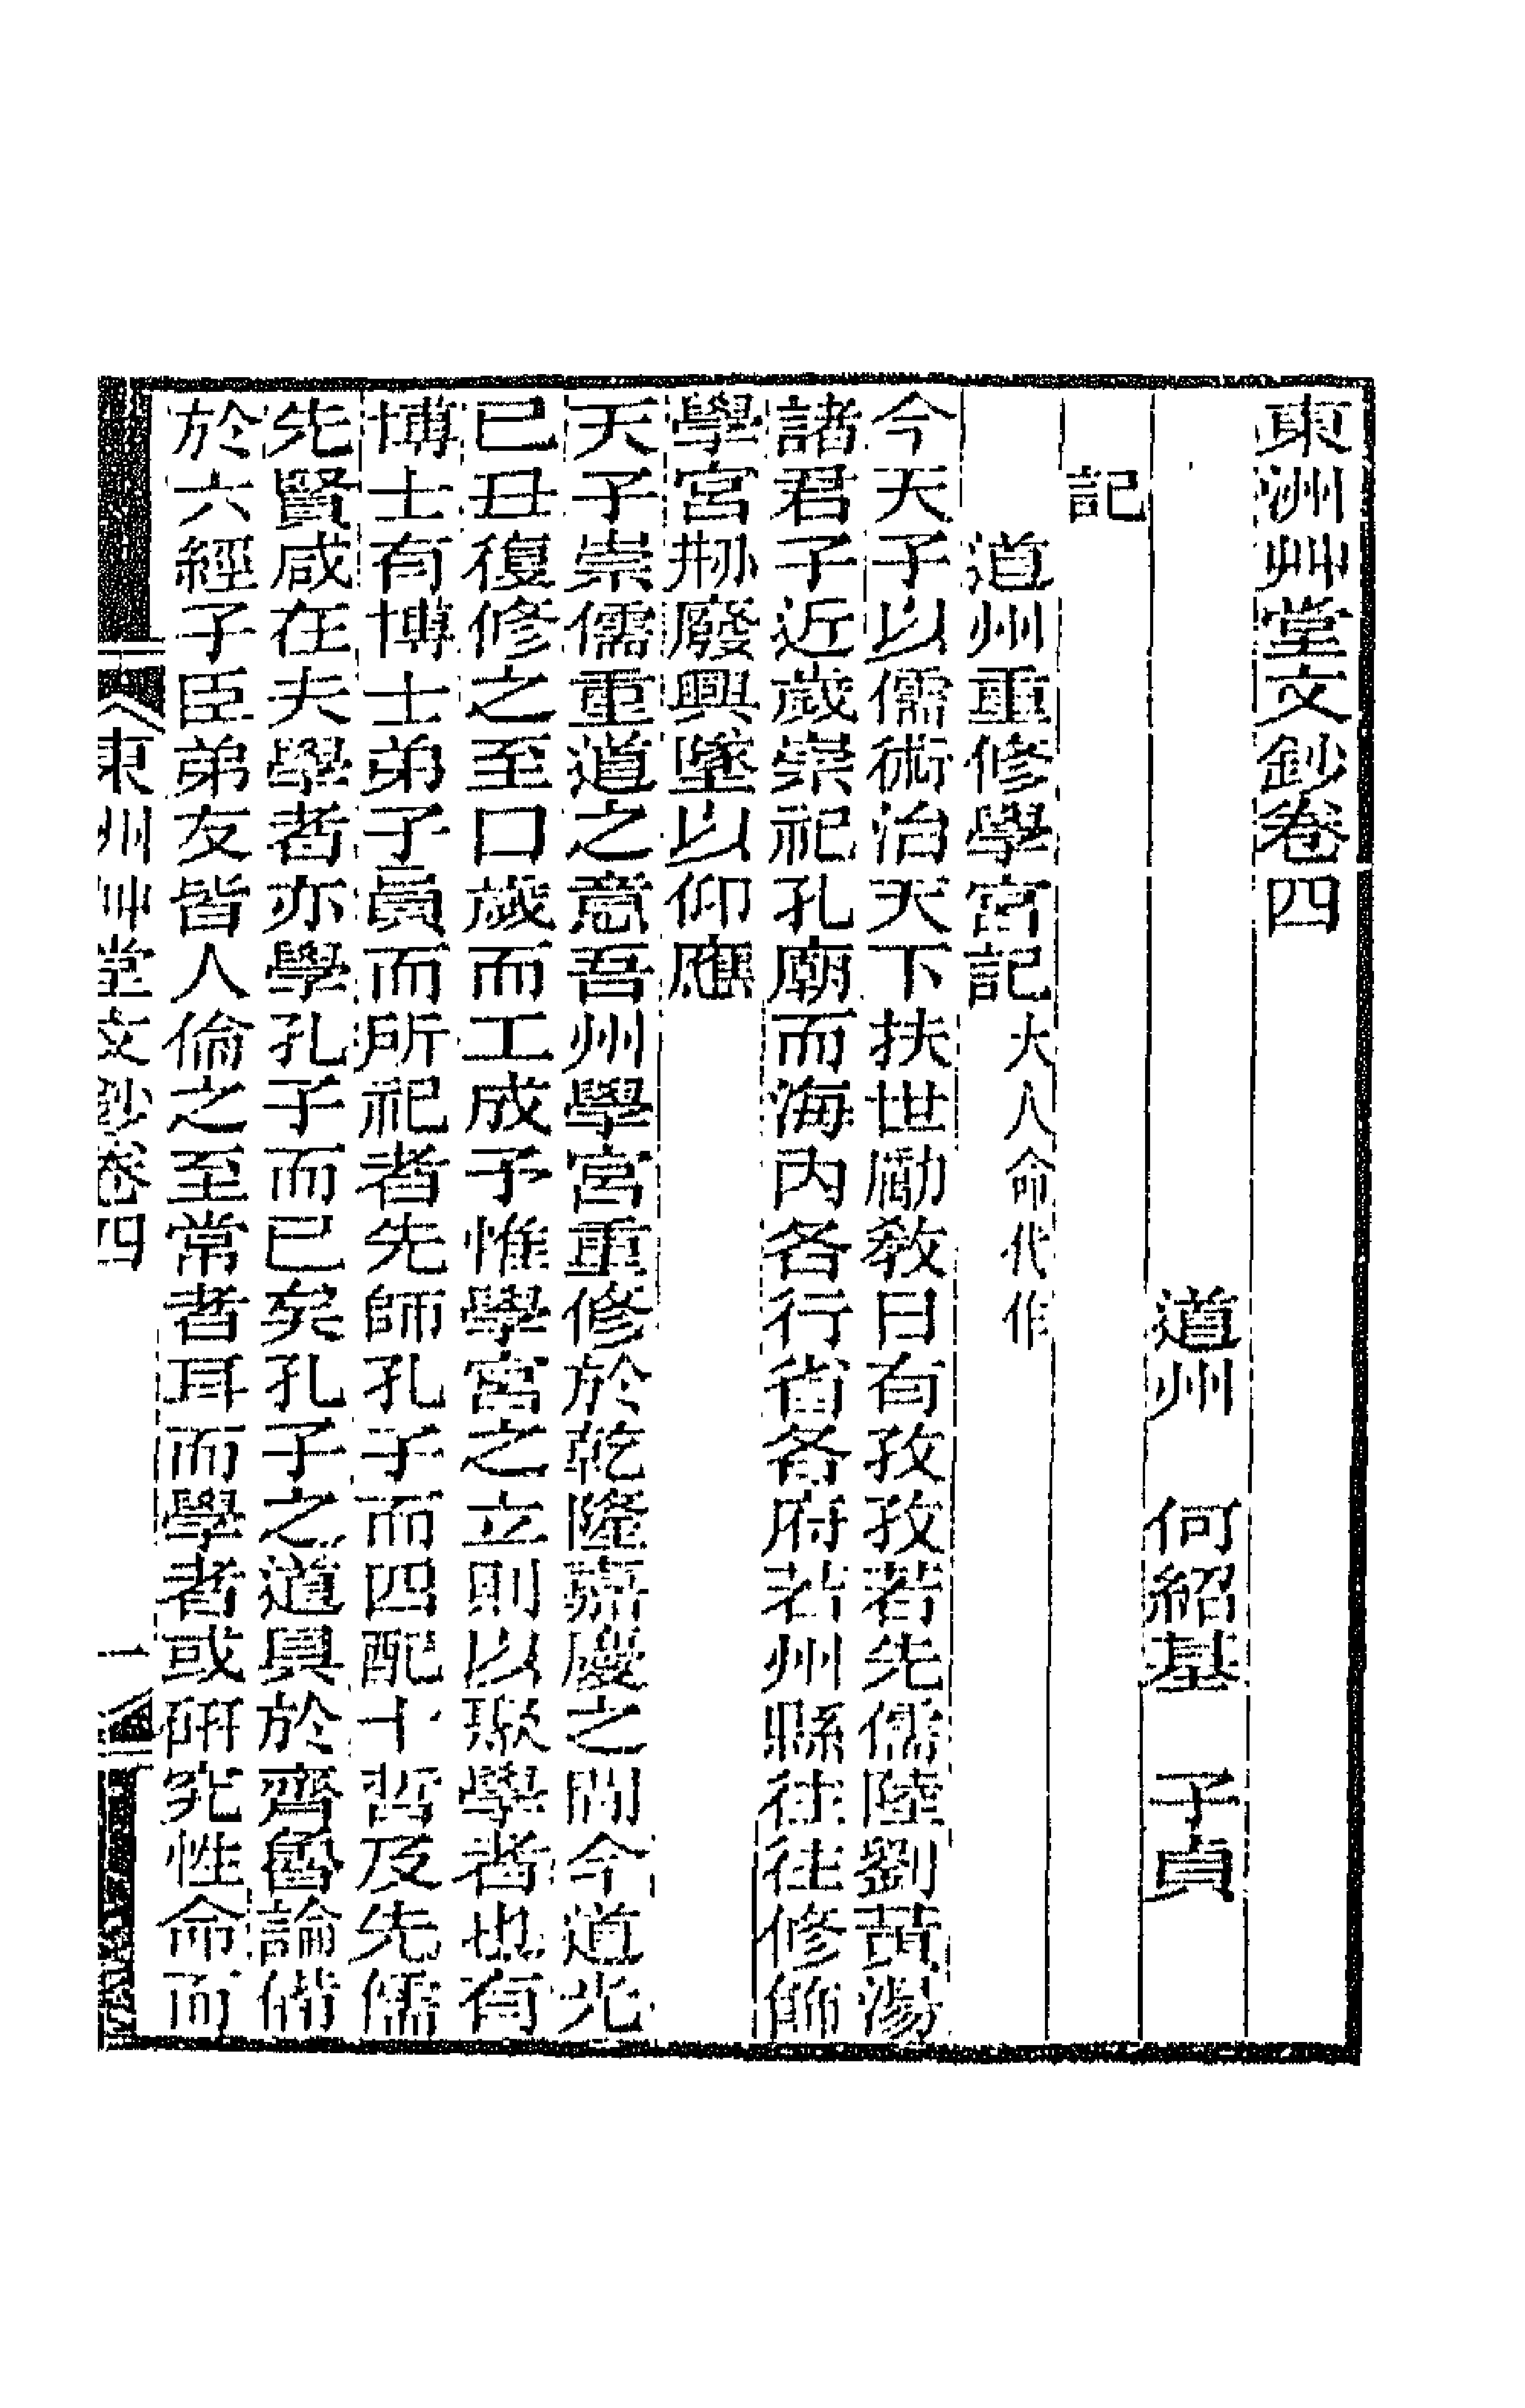 東洲艸堂文鈔卷四
道州 何紹基 子貞
記
道州重修學宮記大人命代作
今天子以儒術治天下扶世勵敎日有孜孜若先儒陸劉黃湯
諸君子近歲崇祀孔廟而海內各行省各府若州縣往往修飾
學宮刱廢興墜以仰應
天子崇儒重道之意吾州學宮重修於乾隆嘉慶之間今道光
已丑復修之至口歲而工成予惟學宮之立則以聚學者也有
博士有博士弟子員而所祀者先師孔子而四配十哲及先儒
先賢咸在夫學者亦學孔子而已矣孔子之道具於齊魯論備
於六經子臣弟友皆人倫之至常者耳而學者或硏究性命而
東洲艸堂文鈔卷四 一